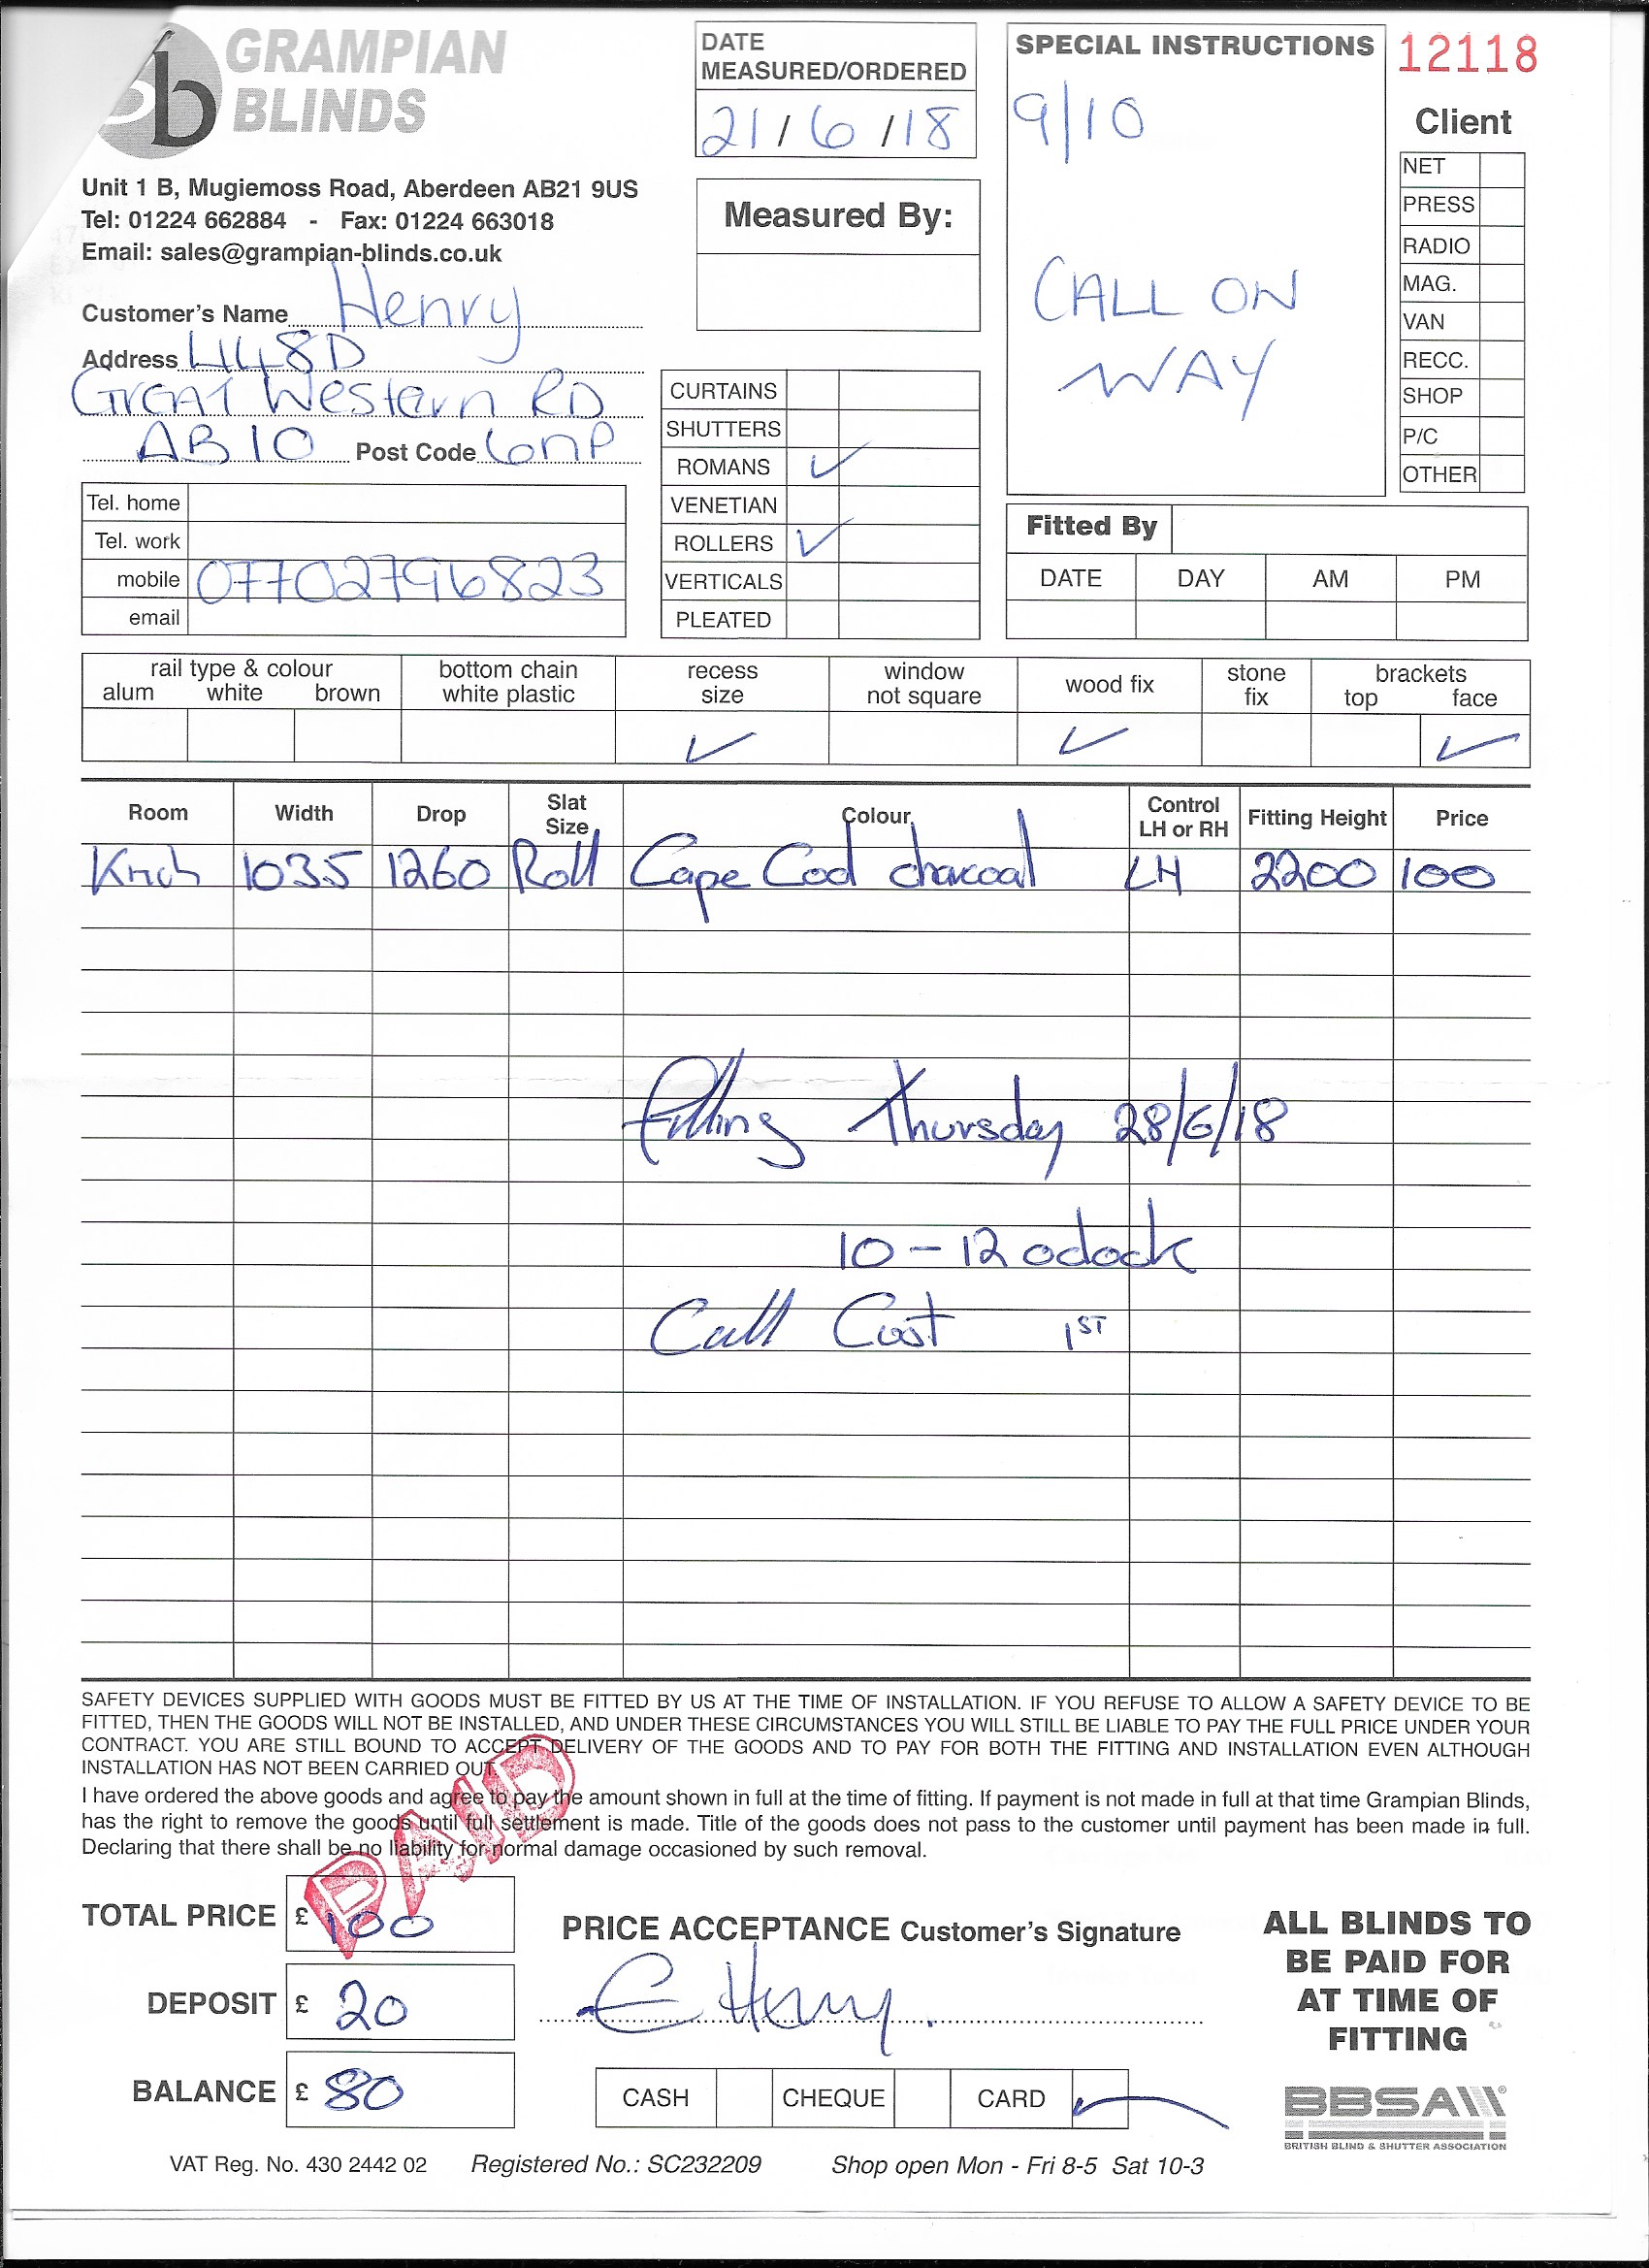 GRAMPIAN
BLINDS
Unit 1 B, Mugiemoss Road, Aberdeen AB21 9US
Tel: 01224 662884 - Fax: 01224 663018
Email: sales@grampian-blinds.co.uk
Customer's Name Henry
Address 448D
Great Western RD
AB10 Post Code 6NP
Tel. home
Tel. work
mobile 07702796823
email
DATE
MEASURED/ORDERED
21/6/18
Measured By:
CURTAINS
SHUTTERS
ROMANS ✓
VENETIAN
ROLLERS ✓
VERTICALS
PLEATED
SPECIAL INSTRUCTIONS
9/10
CALL ON
WAY
12118
Client
NET
PRESS
RADIO
MAG.
VAN
RECC.
SHOP
P/C
OTHER
Fitted By
DATE DAY AM PM
rail type & colour
alum white brown
bottom chain
white plastic
recess
size ✓
window
not square
wood fix ✓
stone
fix
brackets
top face ✓
Room Width Drop Slat Size Colour Control LH or RH Fitting Height Price
Kitch 1035 1260 Roll Cape Cod charcoal LH 2200 100
fitting Thursday 28/6/18
10-12 oclock
Call Cust 1ST
SAFETY DEVICES SUPPLIED WITH GOODS MUST BE FITTED BY US AT THE TIME OF INSTALLATION. IF YOU REFUSE TO ALLOW A SAFETY DEVICE TO BE
FITTED, THEN THE GOODS WILL NOT BE INSTALLED, AND UNDER THESE CIRCUMSTANCES YOU WILL STILL BE LIABLE TO PAY THE FULL PRICE UNDER YOUR
CONTRACT. YOU ARE STILL BOUND TO ACCEPT DELIVERY OF THE GOODS AND TO PAY FOR BOTH THE FITTING AND INSTALLATION EVEN ALTHOUGH
INSTALLATION HAS NOT BEEN CARRIED OUT.
I have ordered the above goods and agree to pay the amount shown in full at the time of fitting. If payment is not made in full at that time Grampian Blinds,
has the right to remove the goods until full settlement is made. Title of the goods does not pass to the customer until payment has been made in full.
Declaring that there shall be no liability for normal damage occasioned by such removal.
PAID
TOTAL PRICE £ 100
DEPOSIT £ 20
BALANCE £ 80
PRICE ACCEPTANCE Customer's Signature
E Henry.
CASH CHEQUE CARD ✓
ALL BLINDS TO
BE PAID FOR
AT TIME OF
FITTING
BBSA
BRITISH BLIND & SHUTTER ASSOCIATION
VAT Reg. No. 430 2442 02 Registered No.: SC232209 Shop open Mon - Fri 8-5 Sat 10-3